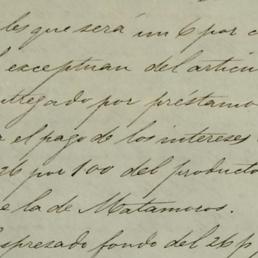 les que será un 6 por c
exceptuan del artícu
ntregado por préstamo
el pago de los intereses
26 por 100 del producto
e la de Matamoros.
spresado fondo del 26 p